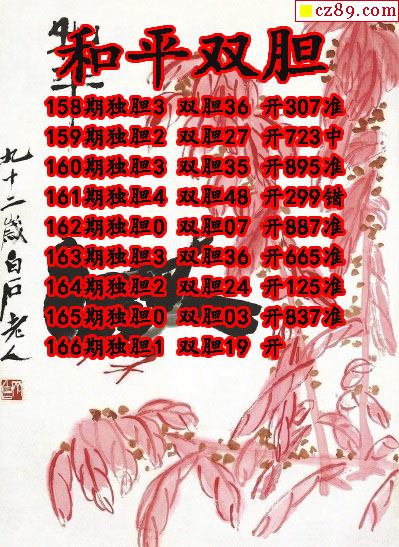 cz89.com
和平双胆
158期独胆3 双胆36 开307准
159期独胆2 双胆27 开723中
160期独胆3 双胆35 开895准
161期独胆4 双胆48 开299错
162期独胆0 双胆07 开887准
163期独胆3 双胆36 开665准
164期独胆2 双胆24 开125准
165期独胆0 双胆03 开837准
166期独胆1 双胆19 开
九十二岁白石老人